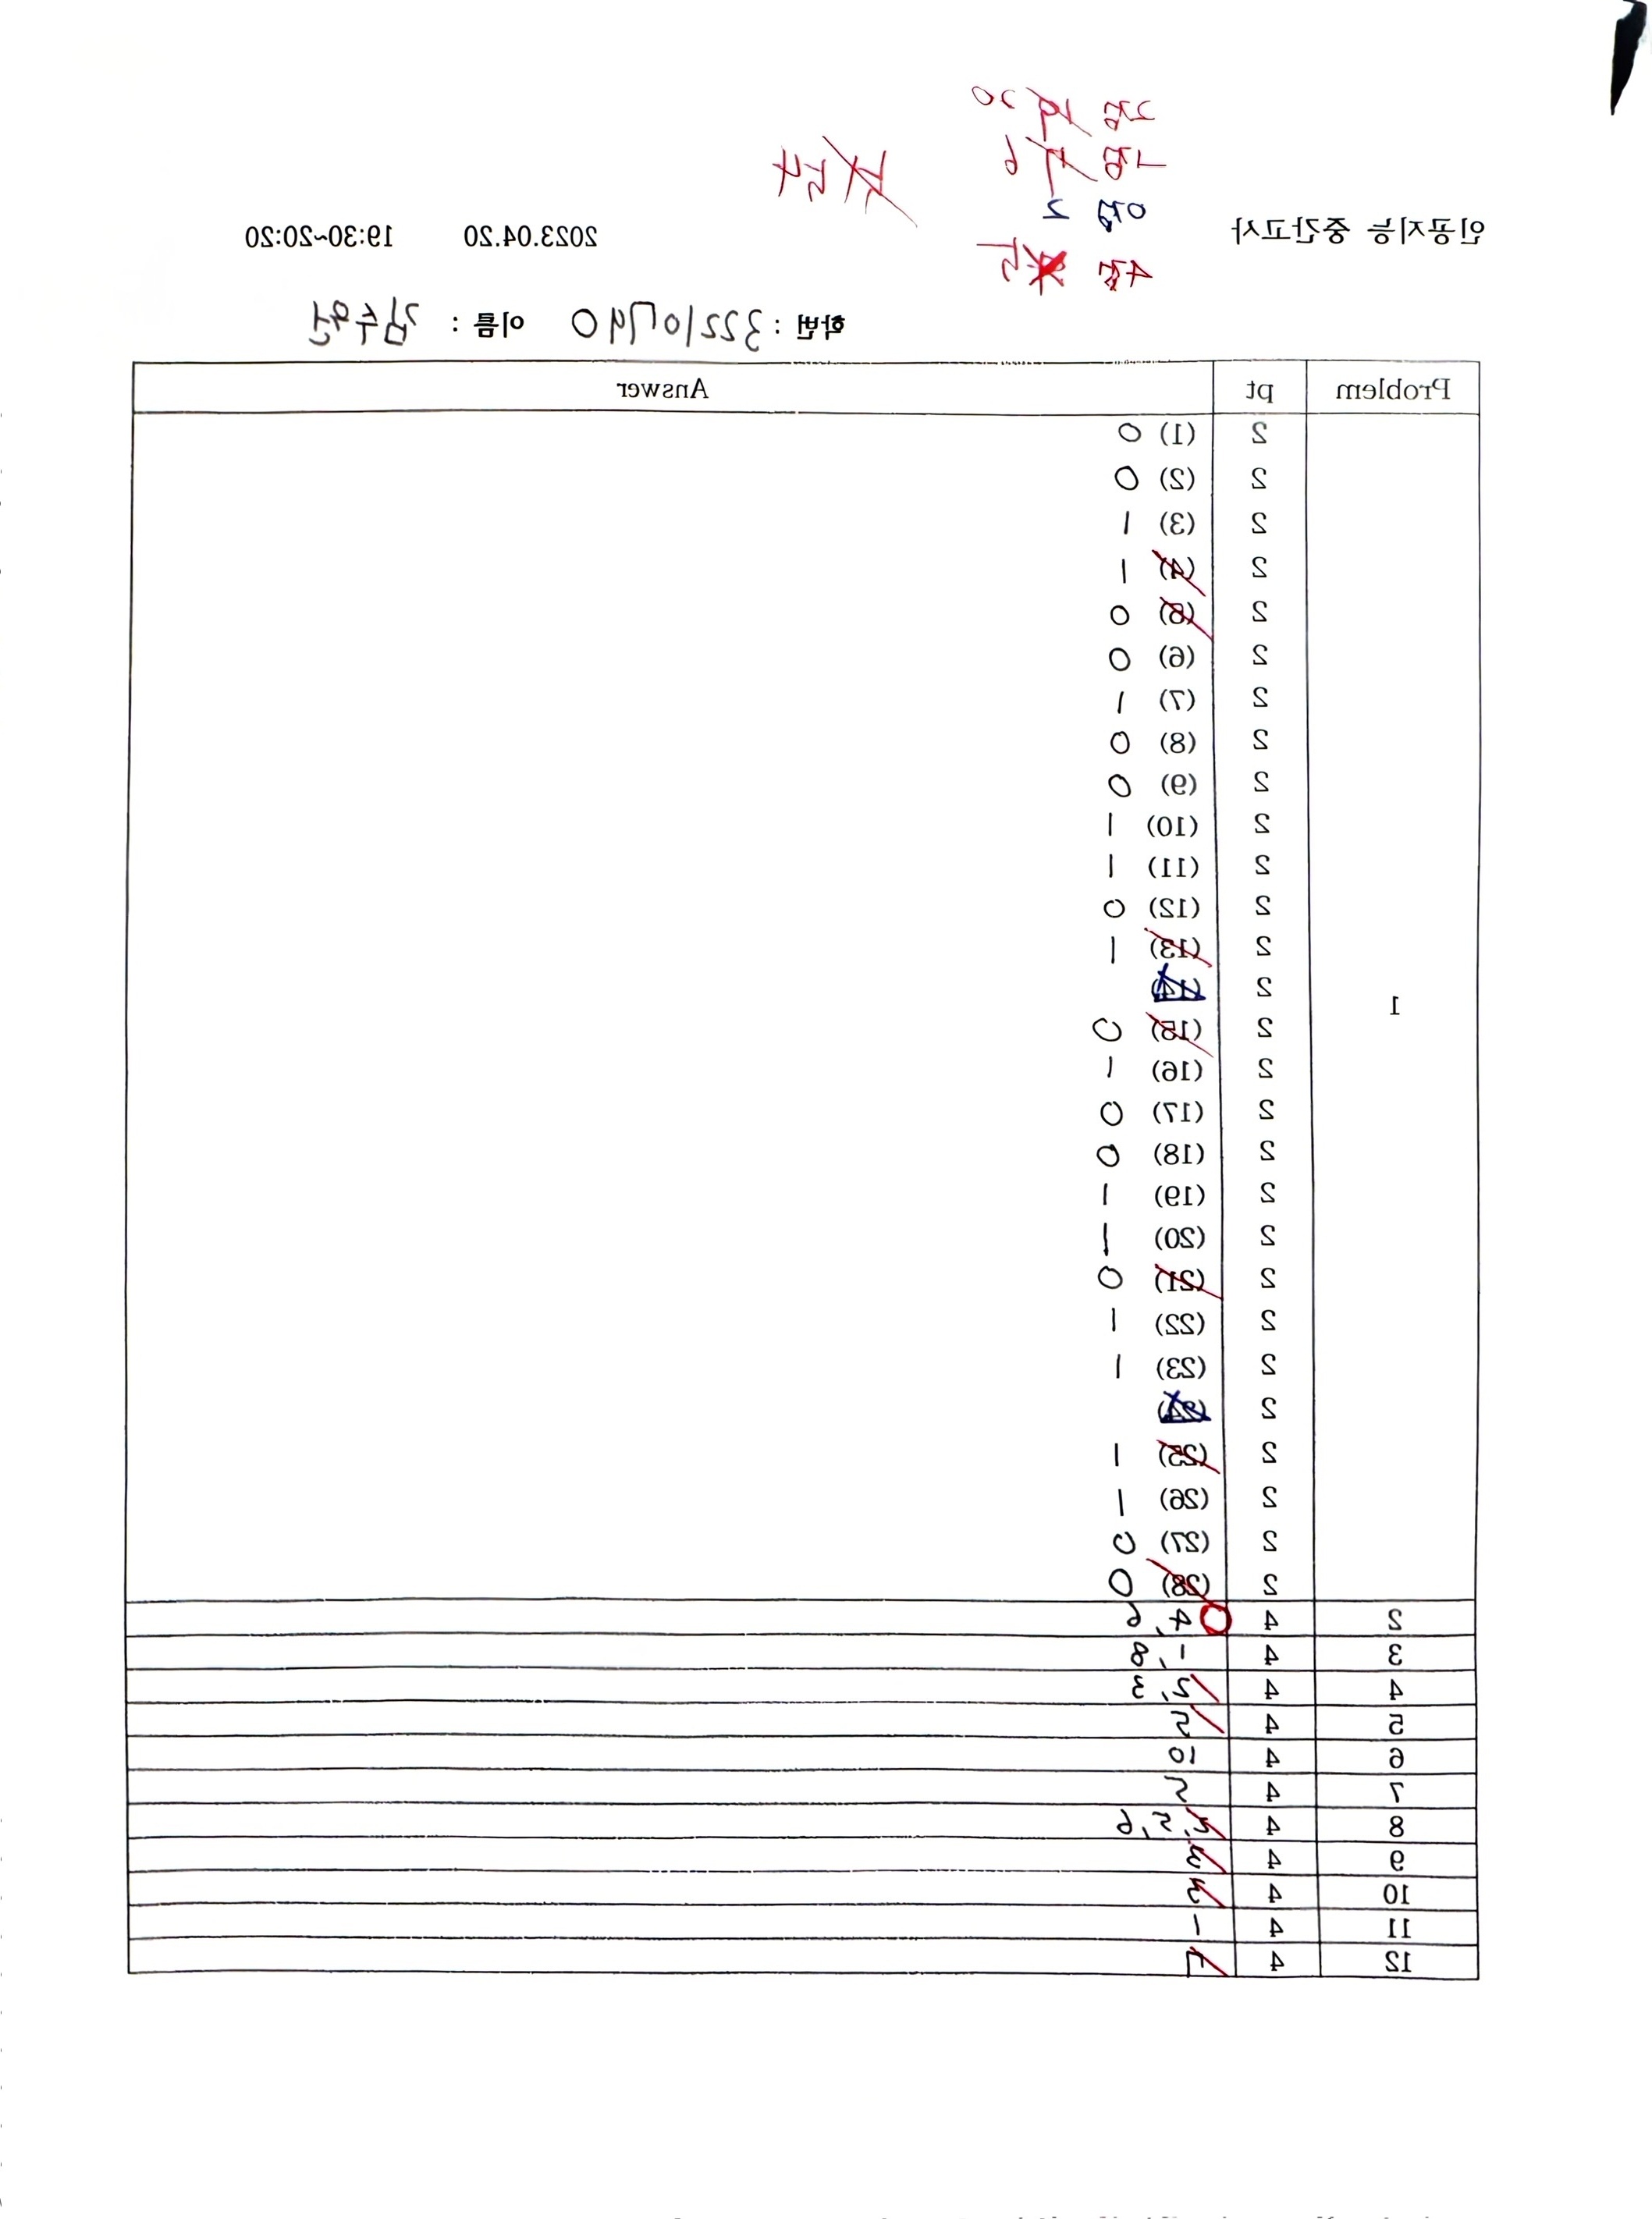 2점 20
1점 6
0점 2
4점 5
54
인공지능 중간고사 2023.04.20 19:30~20:20
학번 : 32210790 이름 : 김수원
Problem pt Answer
1
2 (1) 0
2 (2) 0
2 (3) 1
2 (4) 1
2 (5) 0
2 (6) 0
2 (7) 1
2 (8) 0
2 (9) 0
2 (10) 1
2 (11) 1
2 (12) 0
2 (13) 1
2 (14)
2 (15) 0
2 (16) 1
2 (17) 0
2 (18) 0
2 (19) 1
2 (20) 1
2 (21) 0
2 (22) 1
2 (23) 1
2 (24)
2 (25) 1
2 (26) 1
2 (27) 0
2 (28) 0
2 4 4, 6
3 4 1, 8
4 4 2, 3
5 4 2
6 4 10
7 4 2
8 4 2, 6
9 4 3
10 4 3
11 4 1
12 4 7